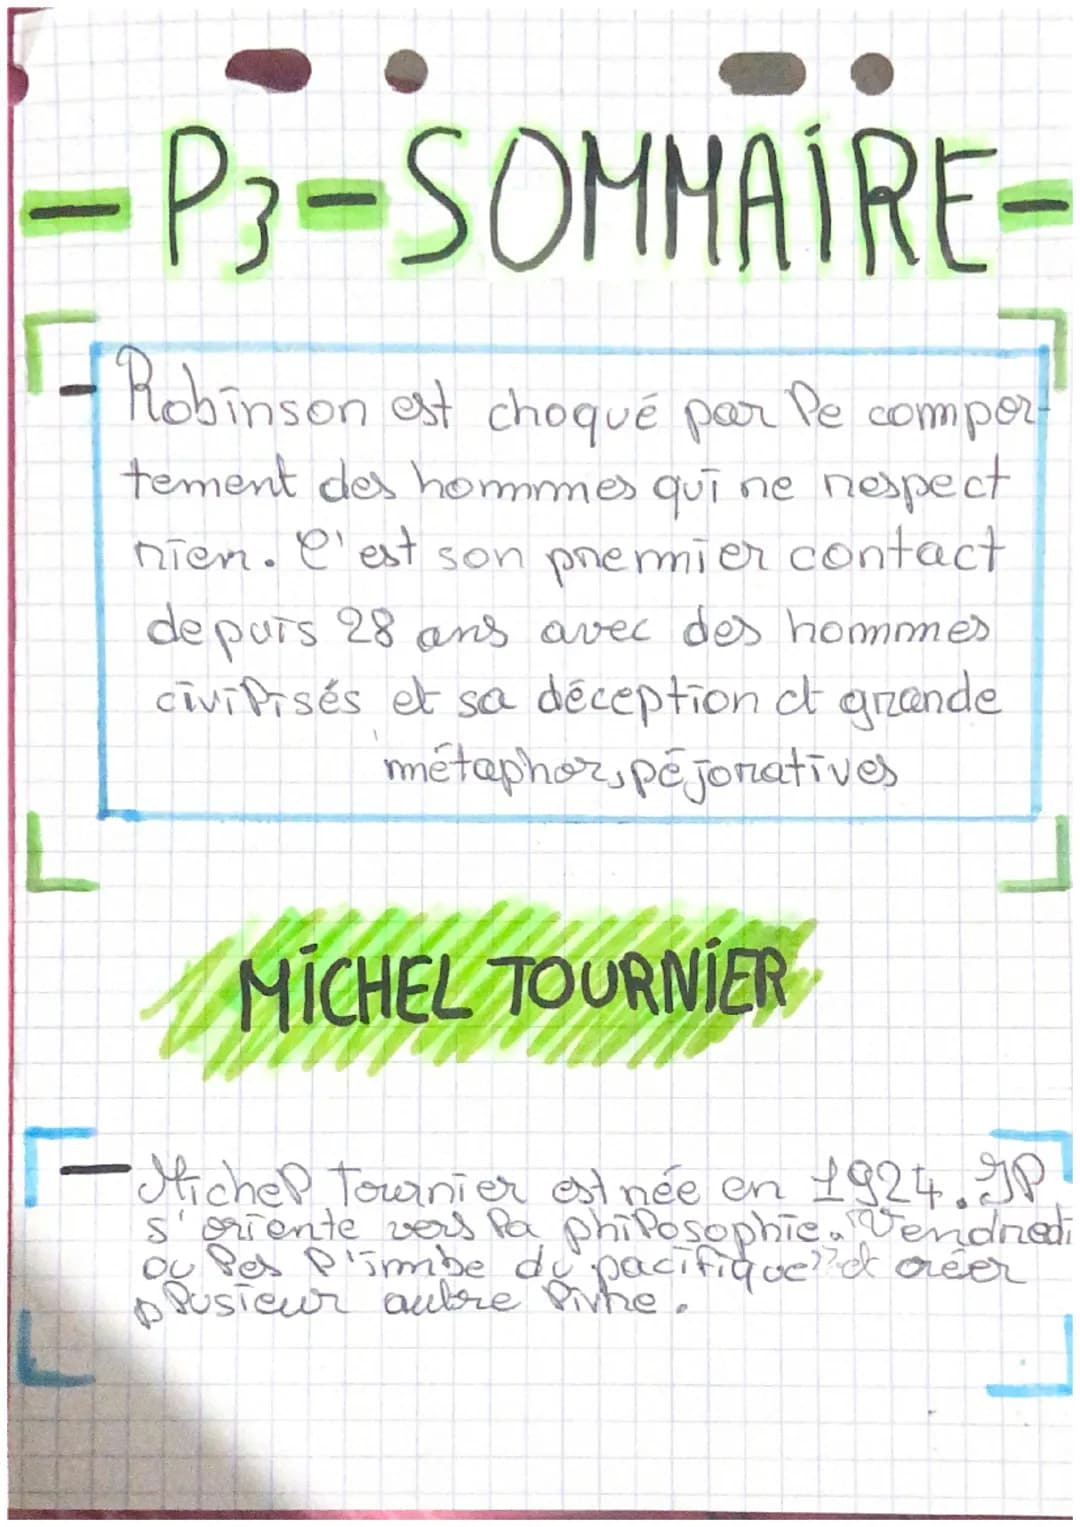 - P3 - SOMMAIRE -
- Robinson est choqué par le compor-
tement des hommmes qui ne respect
rien. C'est son premmier contact
depuis 28 ans avec des hommmes
civilisés et sa déception et grande
métaphor, péjoratives
MICHEL TOURNIER
- Michel Tournier est née en 1924. Il
s'oriente vers la philosophie. "Vendredi
ou les l'imbe du pacifique" et créer
plusieur autre livre.